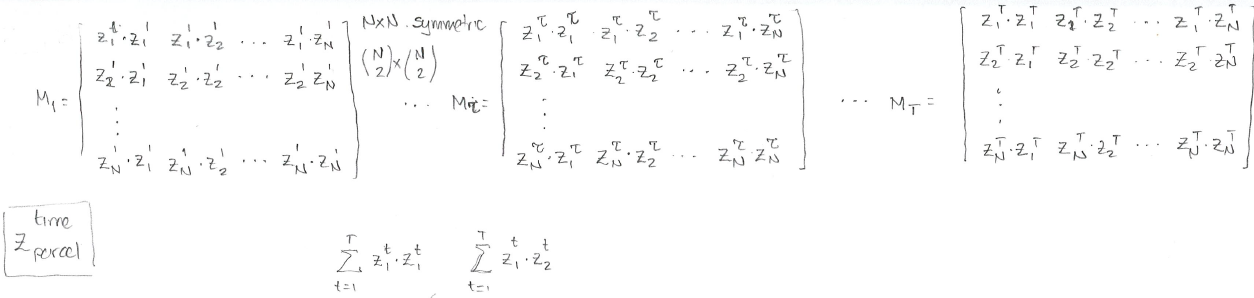 M₁ = [ z₁¹·z₁¹ z₁¹·z₂¹ ... z₁¹·z_N¹
z₂¹·z₁¹ z₂¹·z₂¹ ... z₂¹ z_N¹
⋮
z_N¹·z₁¹ z_N¹·z₂¹ ... z_N¹·z_N¹ ]
N×N symmetric
(N 2)×(N 2)
... M_τ = [ z₁^τ·z₁^τ z₁^τ·z₂^τ ... z₁^τ·z_N^τ
z₂^τ·z₁^τ z₂^τ·z₂^τ ... z₂^τ·z_N^τ
⋮
z_N^τ·z₁^τ z_N^τ·z₂^τ ... z_N^τ z_N^τ ]
... M_T = [ z₁^T·z₁^T z₁^T·z₂^T ... z₁^T·z_N^T
z₂^T·z₁^T z₂^T z₂^T ... z₂^T z_N^T
⋮
z_N^T·z₁^T z_N^T·z₂^T ... z_N^T·z_N^T ]
time
z parcel
∑_{t=1}^{T} z₁^t·z₁^t ∑_{t=1}^{T} z₁^t·z₂^t